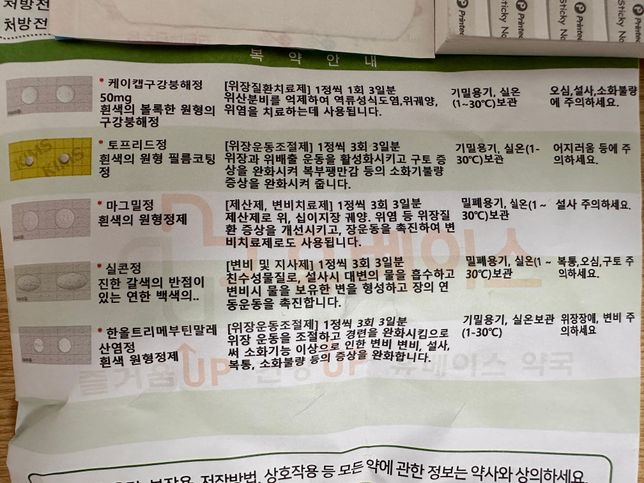 처방전
처방전
Printec
Sticky No
Printec
Sticky No
복 약 안 내
* 케이캡구강붕해정
50mg
흰색의 볼록한 원형의
구강붕해정
[위장질환치료제] 1정씩 1회 3일분
위산분비를 억제하여 역류성식도염,위궤양,
위염을 치료하는데 사용됩니다.
기밀용기, 실온
(1~30℃)보관
오심,설사,소화불량
에 주의하세요.
* 토프리드정
흰색의 원형 필름코팅
정
[위장운동조절제] 1정씩 3회 3일분
위장과 위배출 운동을 활성화시키고 구토 증
상을 완화시켜 복부팽만감 등의 소화기불량
증상을 완화시켜 줍니다.
기밀용기, 실온(1-
30℃)보관
어지러움 등에 주
의하세요.
* 마그밀정
흰색의 원형정제
[제산제, 변비치료제] 1정씩 3회 3일분
제산제로 위, 십이지장 궤양. 위염 등 위장질
환 증상을 개선시키고, 장운동을 촉진하여 변
비치료제로도 사용됩니다.
밀폐용기, 실온(1 ~
30℃)보관
설사 주의하세요.
* 실콘정
진한 갈색의 반점이
있는 연한 백색의..
[변비 및 지사제] 1정씩 3회 3일분
친수성물질로, 설사시 대변의 물을 흡수하고
변비시 물을 보유한 변을 형성하고 장의 연
동운동을 촉진합니다.
밀폐용기, 실온(1 ~
30℃)보관
복통,오심,구토 주
의하세요.
* 한올트리메부틴말레
산염정
흰색 원형정제
[위장운동조절제] 1정씩 3회 3일분
위장 운동을 조절하고 경련을 완화시킴으로
써 소화기능 이상으로 인한 변비 변비, 설사,
복통, 소화불량 등의 증상을 완화합니다.
기밀용기, 실온보관
(1-30℃)
위장장애, 변비 주
의하세요
즐거움 UP 건강 UP 뉴베이스 약국
부작용, 저장방법, 상호작용 등 모든 약에 관한 정보는 약사와 상의하세요.